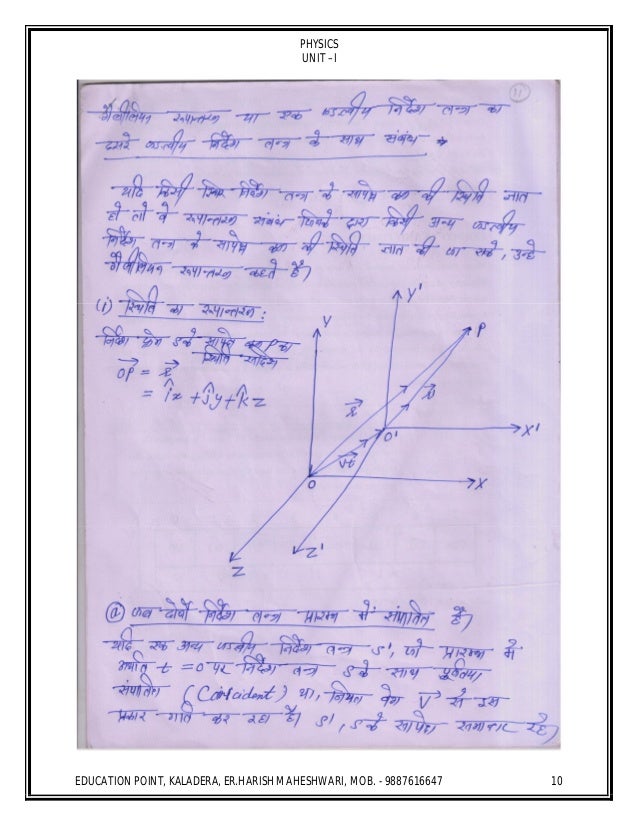 PHYSICS
UNIT – I
11
गैलीलियन रूपान्तरण या एक जडत्वीय निर्देश तन्त्र का
दूसरे जडत्वीय निर्देश तन्त्र के साथ संबंध →
यदि किसी स्थिर निर्देश तन्त्र के सापेक्ष कण की स्थिति ज्ञात
हो तो वे रूपान्तरण संबंध जिनके द्वारा किसी अन्य जडत्वीय
निर्देश तन्त्र के सापेक्ष कण की स्थिति ज्ञात की जा सके, उन्हे
गैलीलियन रूपान्तरण कहते हैं।
(i) स्थिति का रूपान्तरण :
निर्देश फ्रेम S के सापेक्ष कण P का
स्थिति सदिश
OP = r
= îx + ĵy + k̂z
Y
Y'
P
r
r'
O'
X'
vt
O
X
Z
Z'
(a) जब दोनों निर्देश तन्त्र प्रारम्भ में संपातित है।
यदि एक अन्य जडत्वीय निर्देश तन्त्र S', जो प्रारम्भ में
अर्थात t = 0 पर निर्देश तन्त्र S के साथ पूर्णतया
संपातित (Coincident) था, नियत वेग V से इस
प्रकार गति कर रहा है। S', S के सापेक्ष समान्तर रहे।
EDUCATION POINT, KALADERA, ER.HARISH MAHESHWARI, MOB. - 9887616647 10